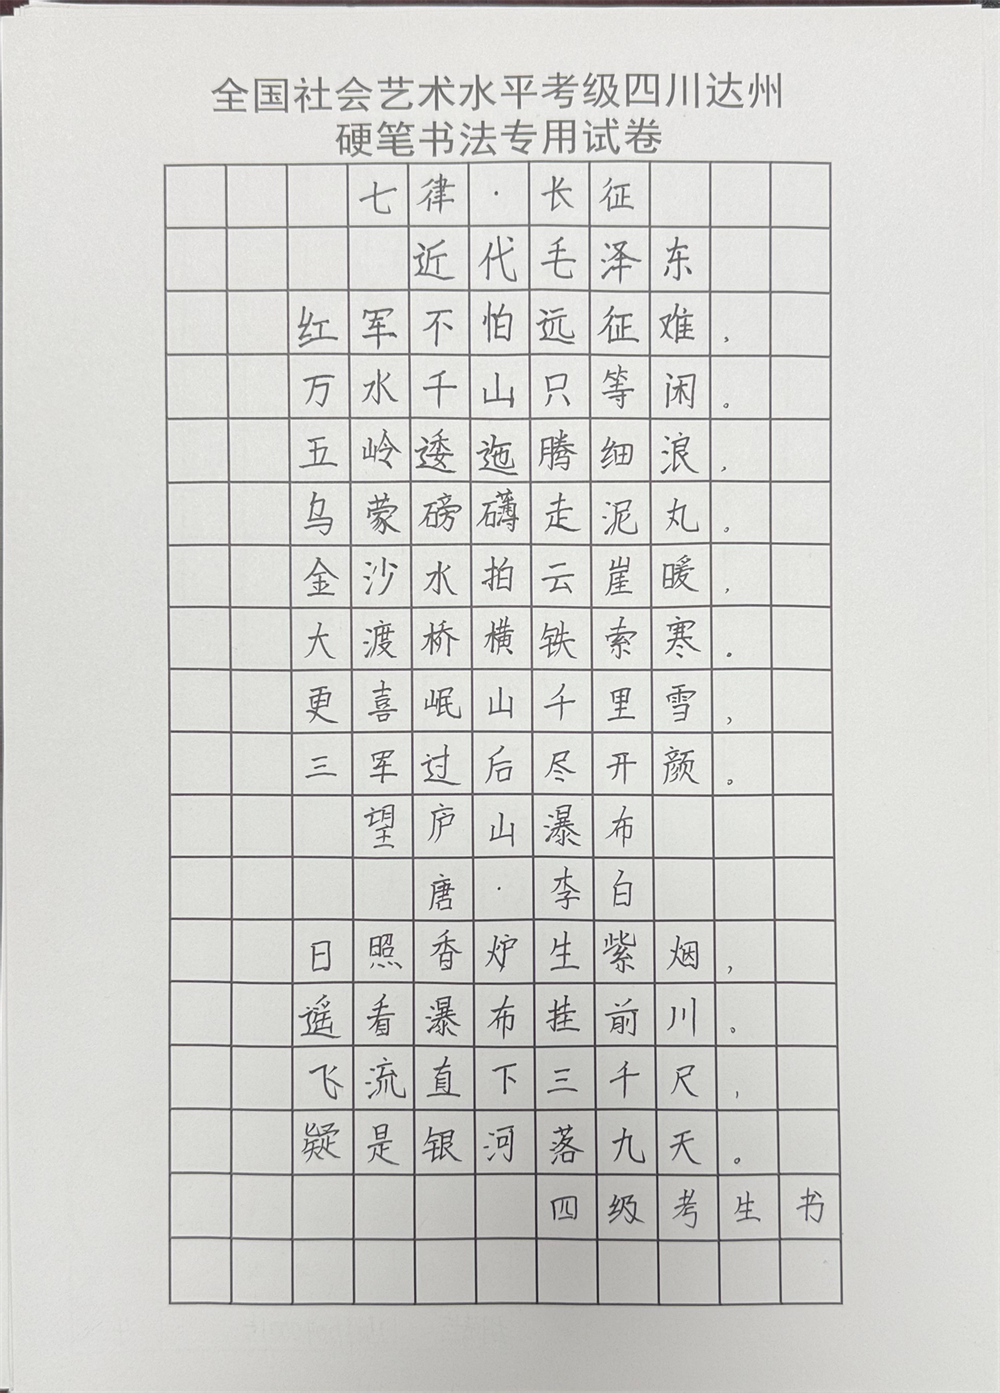 全国社会艺术水平考级四川达州
硬笔书法专用试卷
七律·长征
近代毛泽东
红军不怕远征难,
万水千山只等闲。
五岭逶迤腾细浪,
乌蒙磅礴走泥丸。
金沙水拍云崖暖,
大渡桥横铁索寒。
更喜岷山千里雪,
三军过后尽开颜。
望庐山瀑布
唐·李白
日照香炉生紫烟,
遥看瀑布挂前川。
飞流直下三千尺,
疑是银河落九天。
四级考生书